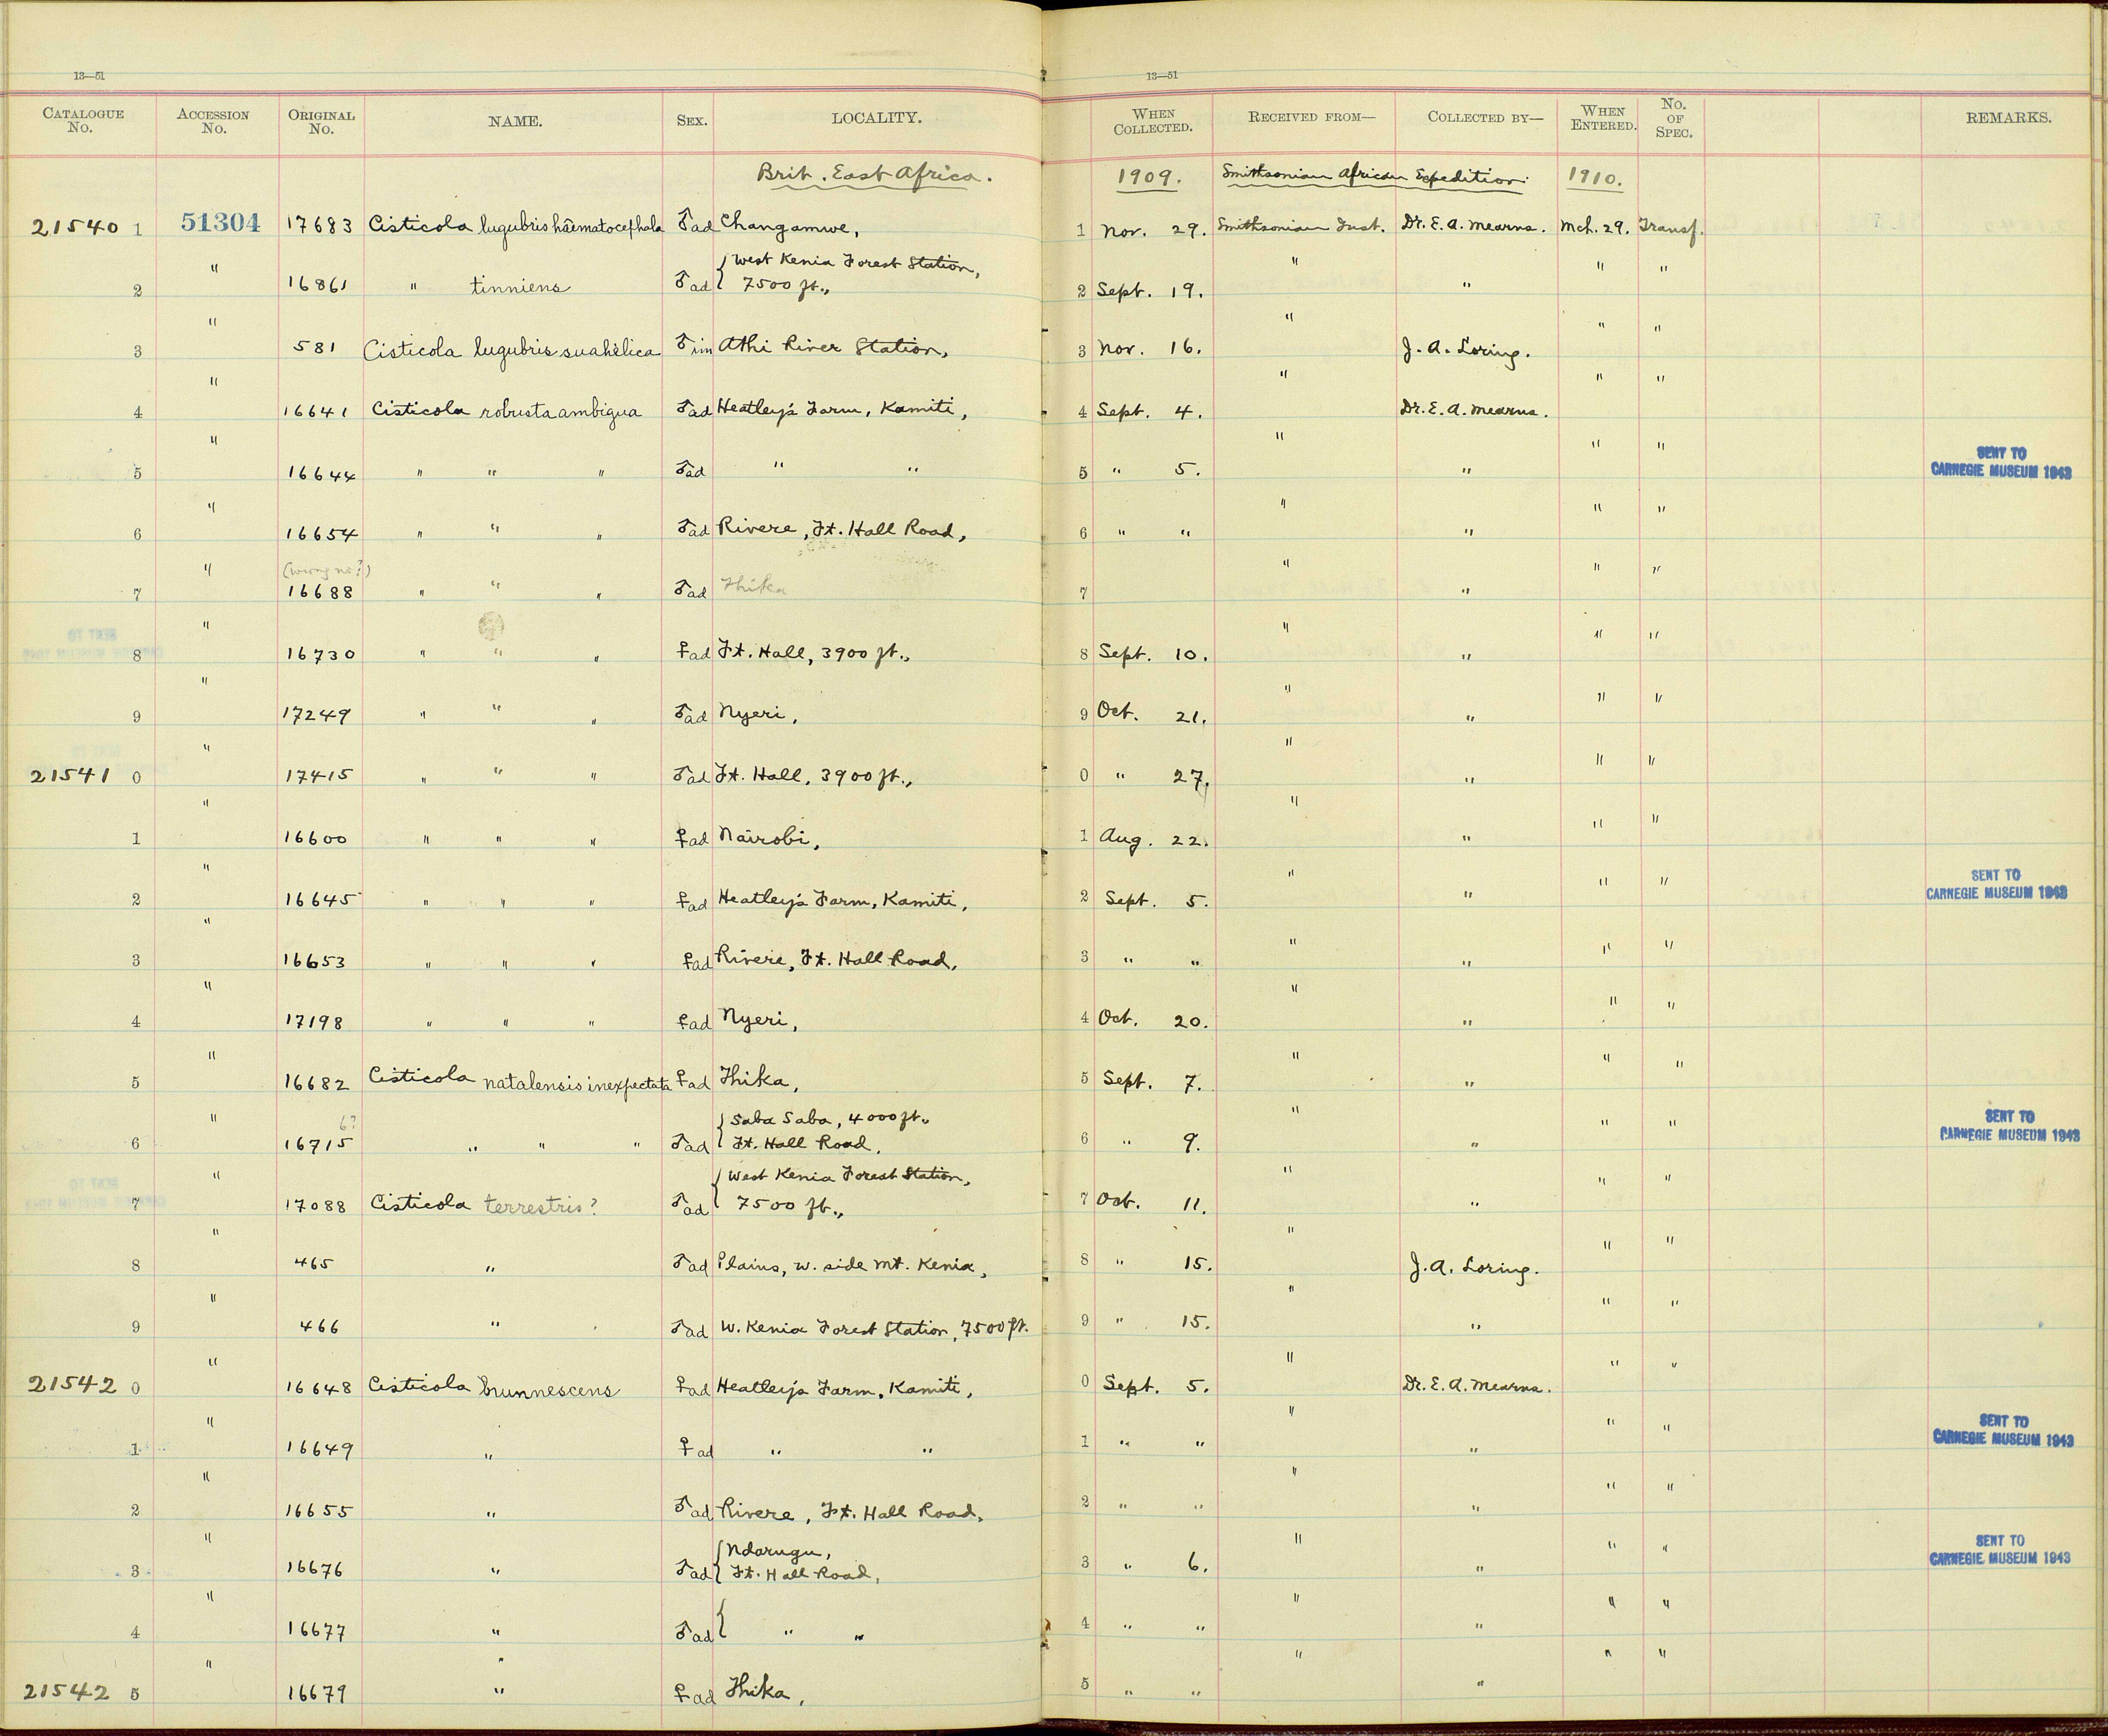 13—51 13—51
CATALOGUE No. ACCESSION No. ORIGINAL No. NAME. SEX. LOCALITY. WHEN COLLECTED. RECEIVED FROM— COLLECTED BY— WHEN ENTERED. No. OF SPEC. REMARKS.
Brit. East Africa. 1909. Smithsonian African Expedition. 1910.
21540 1 51304 17683 Cisticola lugubris hæmatocephala ♂ad Changamwe, 1 Nov. 29. Smithsonian Inst. Dr. E. A. Mearns. Mch. 29. Transf.
2 " 16861 " tinniens ♂ad { West Kenia Forest Station, 7500 ft., 2 Sept. 19. " " " "
3 " 581 Cisticola lugubris suahelica ♂im Athi River Station, 3 Nov. 16. " J. A. Loring. " "
4 " 16641 Cisticola robusta ambigua ♂ad Heatley's Farm, Kamiti, 4 Sept. 4. " Dr. E. A. Mearns. " "
5 " 16644 " " " ♂ad " " 5 " 5. " " " " SENT TO CARNEGIE MUSEUM 1943
6 " 16654 " " " ♂ad Rivere, Ft. Hall Road, 6 " " " " " "
7 " (wrong no?) 16688 " " " ♂ad Thika 7 " " " "
8 " 16730 " " " ♀ad Ft. Hall, 3900 ft., 8 Sept. 10. " " " "
9 " 17249 " " " ♂ad Nyeri, 9 Oct. 21. " " " "
21541 0 " 17415 " " " ♂ad Ft. Hall, 3900 ft., 0 " 27. " " " "
1 " 16600 " " " ♀ad Nairobi, 1 Aug. 22. " " " "
2 " 16645 " " " ♀ad Heatley's Farm, Kamiti, 2 Sept. 5. " " " " SENT TO CARNEGIE MUSEUM 1943
3 " 16653 " " " ♀ad Rivere, Ft. Hall Road, 3 " " " " " "
4 " 17198 " " " ♀ad Nyeri, 4 Oct. 20. " " " "
5 " 16682 Cisticola natalensis inexpectata ♀ad Thika, 5 Sept. 7. " " " "
6 " 6? 16715 " " " ♂ad { Saba Saba, 4000 ft., Ft. Hall Road, 6 " 9. " " " " SENT TO CARNEGIE MUSEUM 1943
7 " 17088 Cisticola terrestris? ♂ad { West Kenia Forest Station, 7500 ft., 7 Oct. 11. " " " "
8 " 465 " ♂ad Plains, w. side Mt. Kenia, 8 " 15. " J. A. Loring. " "
9 " 466 " ♂ad W. Kenia Forest Station, 7500 ft. 9 " 15. " " " "
21542 0 " 16648 Cisticola brunnescens ♀ad Heatley's Farm, Kamiti, 0 Sept. 5. " Dr. E. A. Mearns. " "
1 " 16649 " ♀ad " " 1 " " " " " " SENT TO CARNEGIE MUSEUM 1943
2 " 16655 " ♂ad Rivere, Ft. Hall Road, 2 " " " " " "
3 " 16676 " ♂ad { Ndarugu, Ft. Hall Road, 3 " 6. " " " " SENT TO CARNEGIE MUSEUM 1943
4 " 16677 " ♂ad { " " 4 " " " " " "
21542 5 " 16679 " ♀ad Thika, 5 " " " " " "